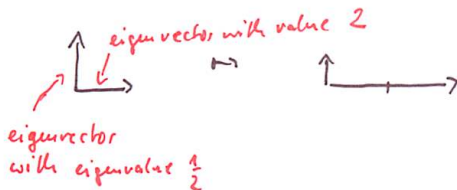 eigenvector with value 2
↦
eigenvector
with eigenvalue 1/2